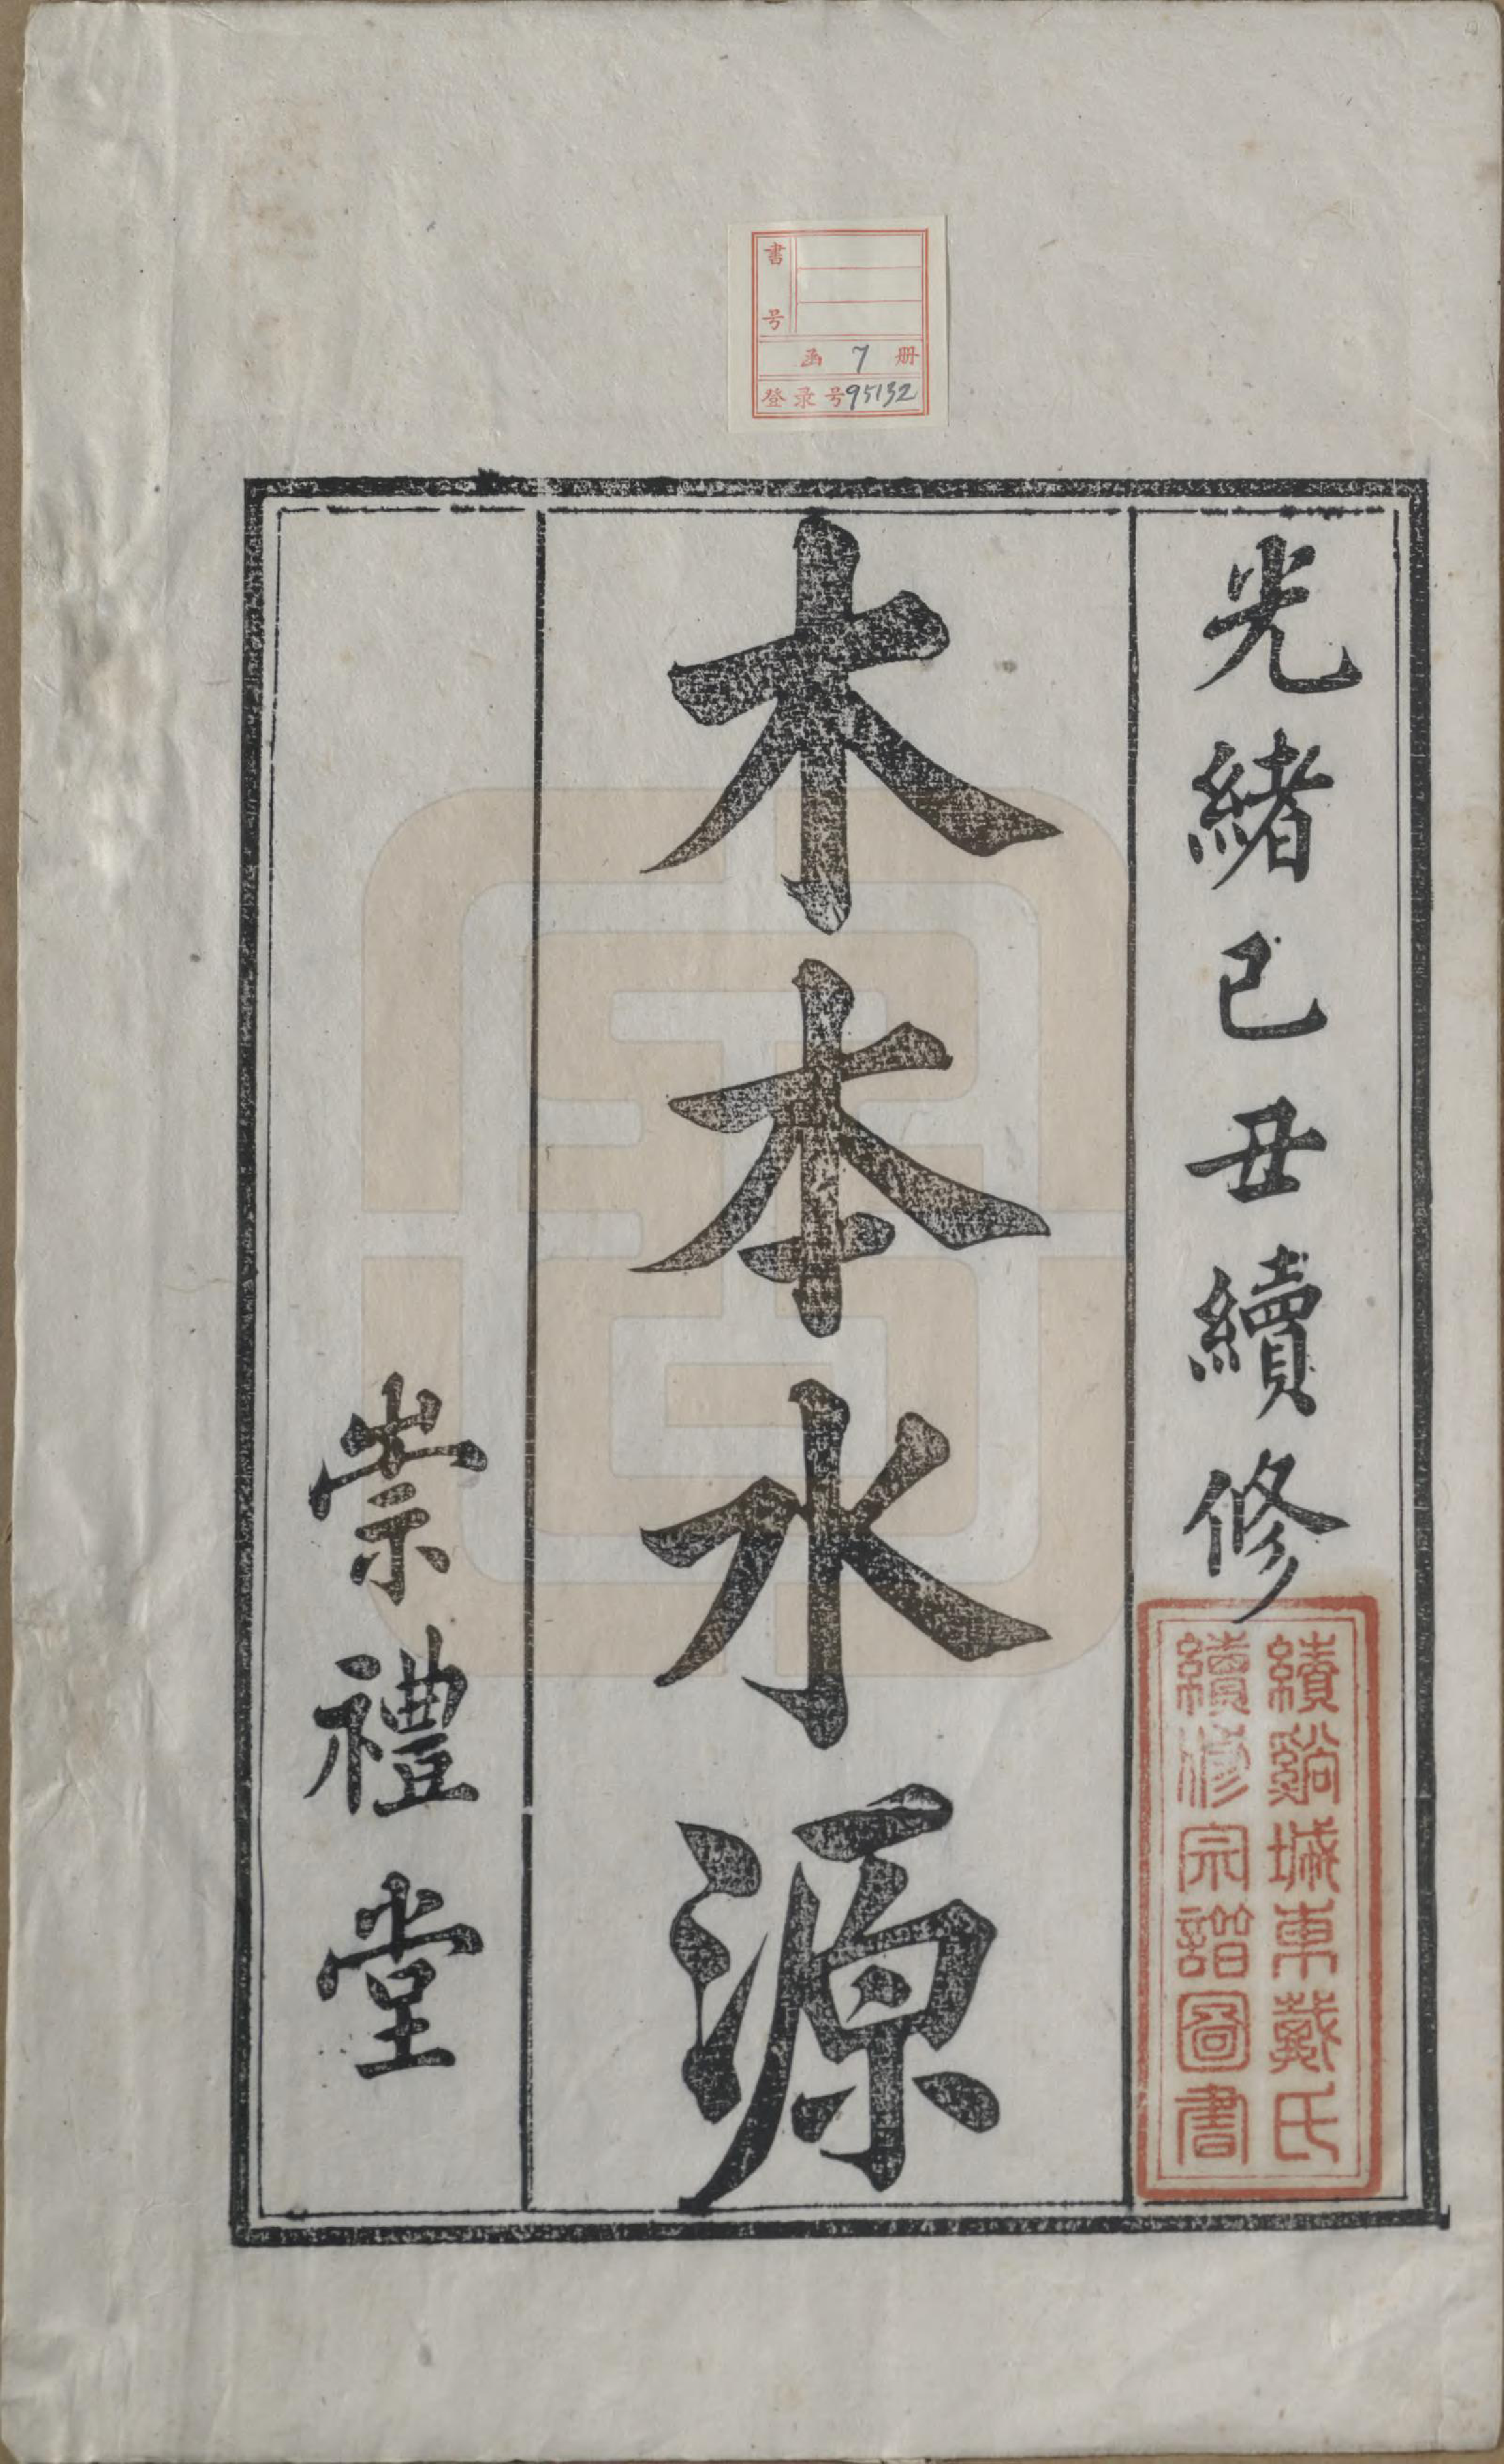 書号
函 7 册
登录号95132
光緒己丑續修
木本水源
崇禮堂
績谿城東戴氏
續修宗譜圖書